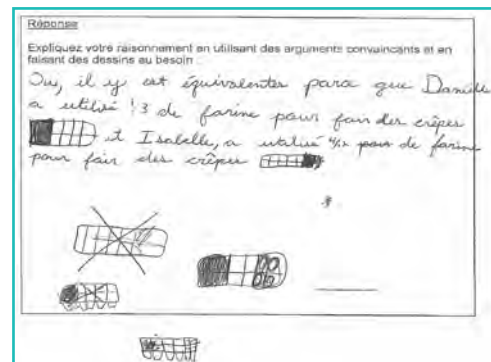 Réponse
Expliquez votre raisonnement en utilisant des arguments convaincants et en
faisant des dessins au besoin :
Oui, il y est équivalentes parce que Danielle
a utilisé 1/3 de farine pour fair des crêpes
et Isabelle, a utilisé 4/12 de farine
pour fair des crêpes